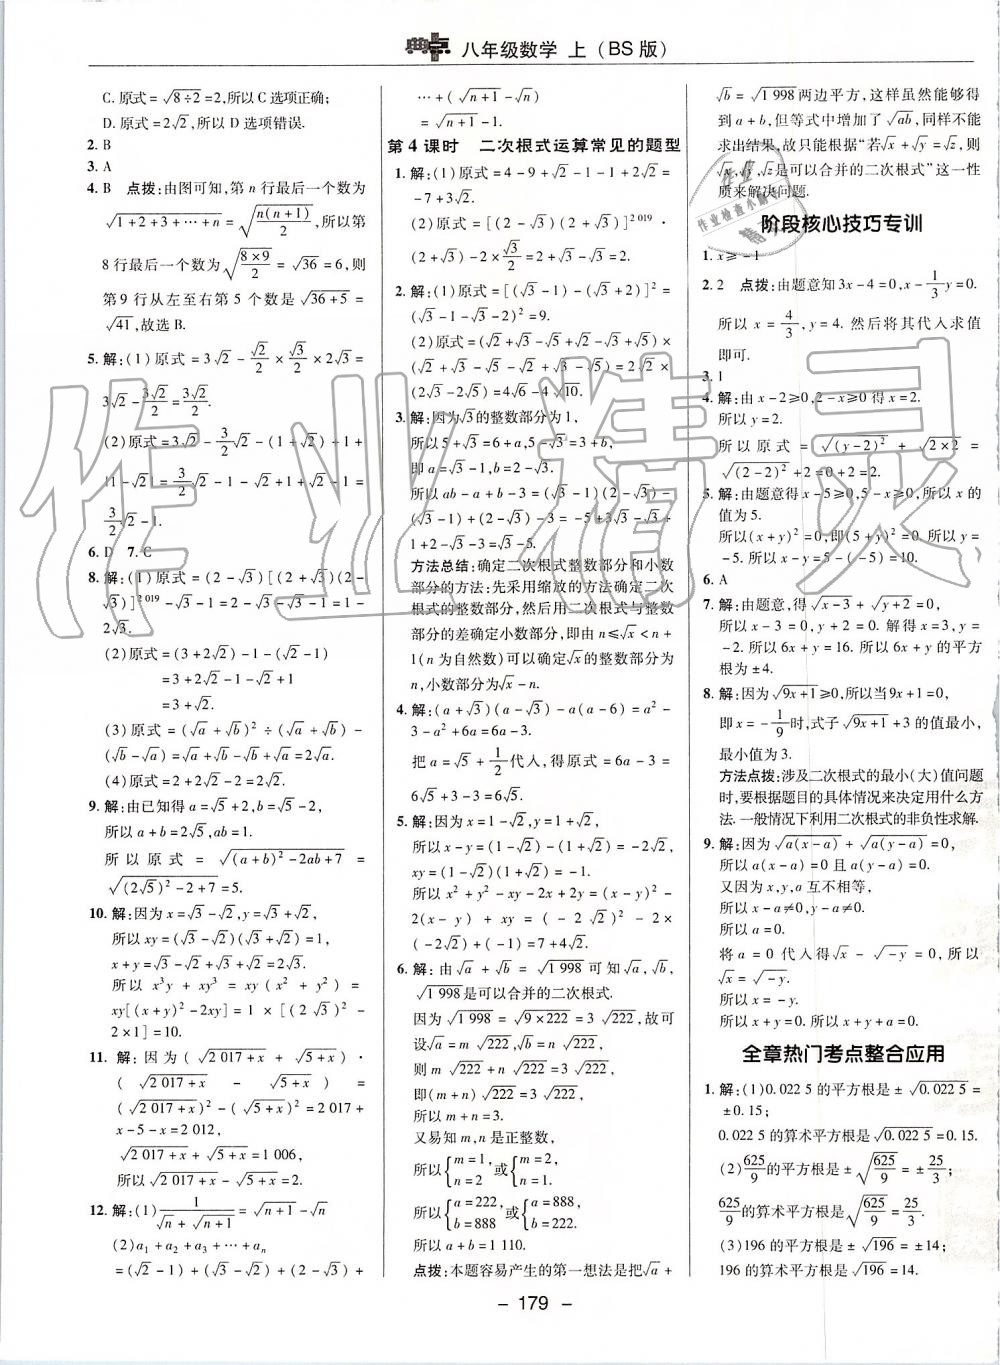 典点 八年级数学 上（BS版）
C. 原式＝√(8÷2)＝2,所以C选项正确；
D. 原式＝2√2,所以D选项错误.
2. B
3. A
4. B 点拨：由图可知,第n行最后一个数为
√(1＋2＋3＋⋯＋n)＝√(n(n＋1)/2),所以第
8行最后一个数为√(8×9/2)＝√36＝6,则
第9行从左至右第5个数是√(36＋5)＝
√41,故选B.
5. 解：(1)原式＝3√2－√2/2×√3/2×2√3＝
3√2－3√2/2＝3√2/2.
(2)原式＝3√2－3/2√2－(1＋√2)＋1＋
11－√2|＝3/2√2－1－√2＋1＋√2－1＝
3/2√2－1.
6. D 7. C
8. 解：(1)原式＝(2－√3)[(2＋√3)(2－
√3)]²⁰¹⁹－√3－1＝2－√3－√3－1＝1－
2√3.
(2)原式＝(3＋2√2)－1－(√2－1)
＝3＋2√2－1－√2＋1
＝3＋√2.
(3)原式＝(√a＋√b)²÷(√a＋√b)－
(√b－√a)＝√a＋√b－√b＋√a＝2√a.
(4)原式＝2＋2√2－2√2＝2.
9. 解：由已知得a＝√5＋2,b＝√5－2,
所以a＋b＝2√5,ab＝1.
所以原式＝√((a＋b)²－2ab＋7)＝
√((2√5)²－2＋7)＝5.
10. 解：因为x＝√3－√2,y＝√3＋√2,
所以xy＝(√3－√2)(√3＋√2)＝1,
x＋y＝√3－√2＋√3＋√2＝2√3.
所以x³y＋xy³＝xy(x²＋y²)＝
xy[(x＋y)²－2xy]＝1×[(2√3)²－
2×1]＝10.
11. 解：因为(√(2 017＋x)＋√(5＋x))·
(√(2 017＋x)－√(5＋x))＝
(√(2 017＋x))²－(√(5＋x))²＝2 017＋
x－5－x＝2 012,
√(2 017＋x)＋√(5＋x)＝1 006,
所以√(2 017＋x)－√(5＋x)＝2.
12. 解：(1)1/(√n＋√(n＋1))＝√(n＋1)－√n
(2)a₁＋a₂＋a₃＋⋯＋aₙ
＝(√2－1)＋(√3－√2)＋(2－√3)＋
⋯＋(√(n＋1)－√n)
＝√(n＋1)－1.
第4课时 二次根式运算常见的题型
1. 解：(1)原式＝4－9＋√2－1－1＋2√2＝
－7＋3√2.
(2)原式＝[(2－√3)(2＋√3)]²⁰¹⁹·
(2＋√3)－2×√3/2＝2＋√3－√3＝2.
2. 解：(1)原式＝[(√3－1)－(√3＋2)]²＝
(√3－1－√3－2)²＝9.
(2)原式＝(√2＋√3－√5＋√2－√3＋√5)×
(√2＋√3－√5－√2＋√3－√5)＝2√2×
(2√3－2√5)＝4√6－4√10.
3. 解：因为√3的整数部分为1,
所以5＋√3＝6＋a,5－√3＝3＋b,
即a＝√3－1,b＝2－√3.
所以ab－a＋b－3＝(√3－1)(2－√3)－
(√3－1)＋(2－√3)－3＝－5＋3√3－√3＋
1＋2－√3－3＝√3－5.
方法总结：确定二次根式整数部分和小数
部分的方法：先采用缩放的方法确定二次
根式的整数部分,然后用二次根式与整数
部分的差确定小数部分,即由n≤√x＜n＋
1(n为自然数)可以确定√x的整数部分为
n,小数部分为√x－n.
4. 解：(a＋√3)(a－√3)－a(a－6)＝a²－
3－a²＋6a＝6a－3.
把a＝√5＋1/2代入,得原式＝6a－3＝
6√5＋3－3＝6√5.
5. 解：因为x＝1－√2,y＝1＋√2,
所以x－y＝(1－√2)－(1＋√2)＝－2√2,
xy＝(1－√2)(1＋√2)＝－1.
所以x²＋y²－xy－2x＋2y＝(x－y)²－
2(x－y)＋xy＝(－2√2)²－2×
(－2√2)＋(－1)＝7＋4√2.
6. 解：由√a＋√b＝√1 998可知√a,√b,
√1 998是可以合并的二次根式.
因为√1 998＝√(9×222)＝3√222,故可
设√a＝m√222,√b＝n√222,
则m√222＋n√222＝3√222,
即(m＋n)√222＝3√222,
所以m＋n＝3.
又易知m,n是正整数,
所以{m＝1, n＝2,或{m＝2, n＝1.
所以{a＝222, b＝888或{a＝888, b＝222.
所以a＋b＝1 110.
点拨：本题容易产生的第一想法是把√a＋
√b＝√1 998两边平方,这样虽然能够得
到a＋b,但等式中增加了√ab,同样不能
求出结果,故只能根据“若√x＋√y＝√z,则
√x,√y,√z是可以合并的二次根式”这一性
质来解决问题.
阶段核心技巧专训
1. x≥－1
2. 2 点拨：由题意知3x－4＝0,x－1/3y＝0.
所以x＝4/3,y＝4.然后将其代入求值
即可.
3. 1
4. 解：由x－2≥0,2－x≥0得x＝2.
所以y＝2.
所以原式＝√((y－2)²)＋√(2×2)＝
√((2－2)²)＋2＝0＋2＝2.
5. 解：由题意得x－5≥0,5－x≥0,所以x的
值为5.
所以(x＋y)²＝0,即(5＋y)²＝0.所以y＝
－5.所以x－y＝5－(－5)＝10.
6. A
7. 解：由题意,得√(x－3)＋√(y＋2)＝0,
所以x－3＝0,y＋2＝0.解得x＝3,y＝
－2.所以6x＋y＝16.所以6x＋y的平方
根为±4.
8. 解：因为√(9x＋1)≥0,所以当9x＋1＝0,
即x＝－1/9时,式子√(9x＋1)＋3的值最小,
最小值为3.
方法点拨：涉及二次根式的最小(大)值问题
时,要根据题目的具体情况来决定用什么方
法.一般情况下利用二次根式的非负性求解.
9. 解：因为√(a(x－a))＋√(a(y－a))＝0,
所以a(x－a)＝0且a(y－a)＝0.
又因为x,y,a互不相等,
所以x－a≠0,y－a≠0,
所以a＝0.
将a＝0代入得√x－√(－y)＝0,所以
√x＝√(－y).
所以x＝－y.
所以原式＝1/3.
全章热门考点整合应用
1. 解：(1)0.022 5的平方根是±√0.022 5＝
±0.15；
0.022 5的算术平方根是√0.022 5＝0.15.
(2)625/9的平方根是±√(625/9)＝±25/3；
625/9的算术平方根是√(625/9)＝25/3.
(3)196的平方根是±√196＝±14；
196的算术平方根是√196＝14.
－ 179 －
作业精灵
作业检查小